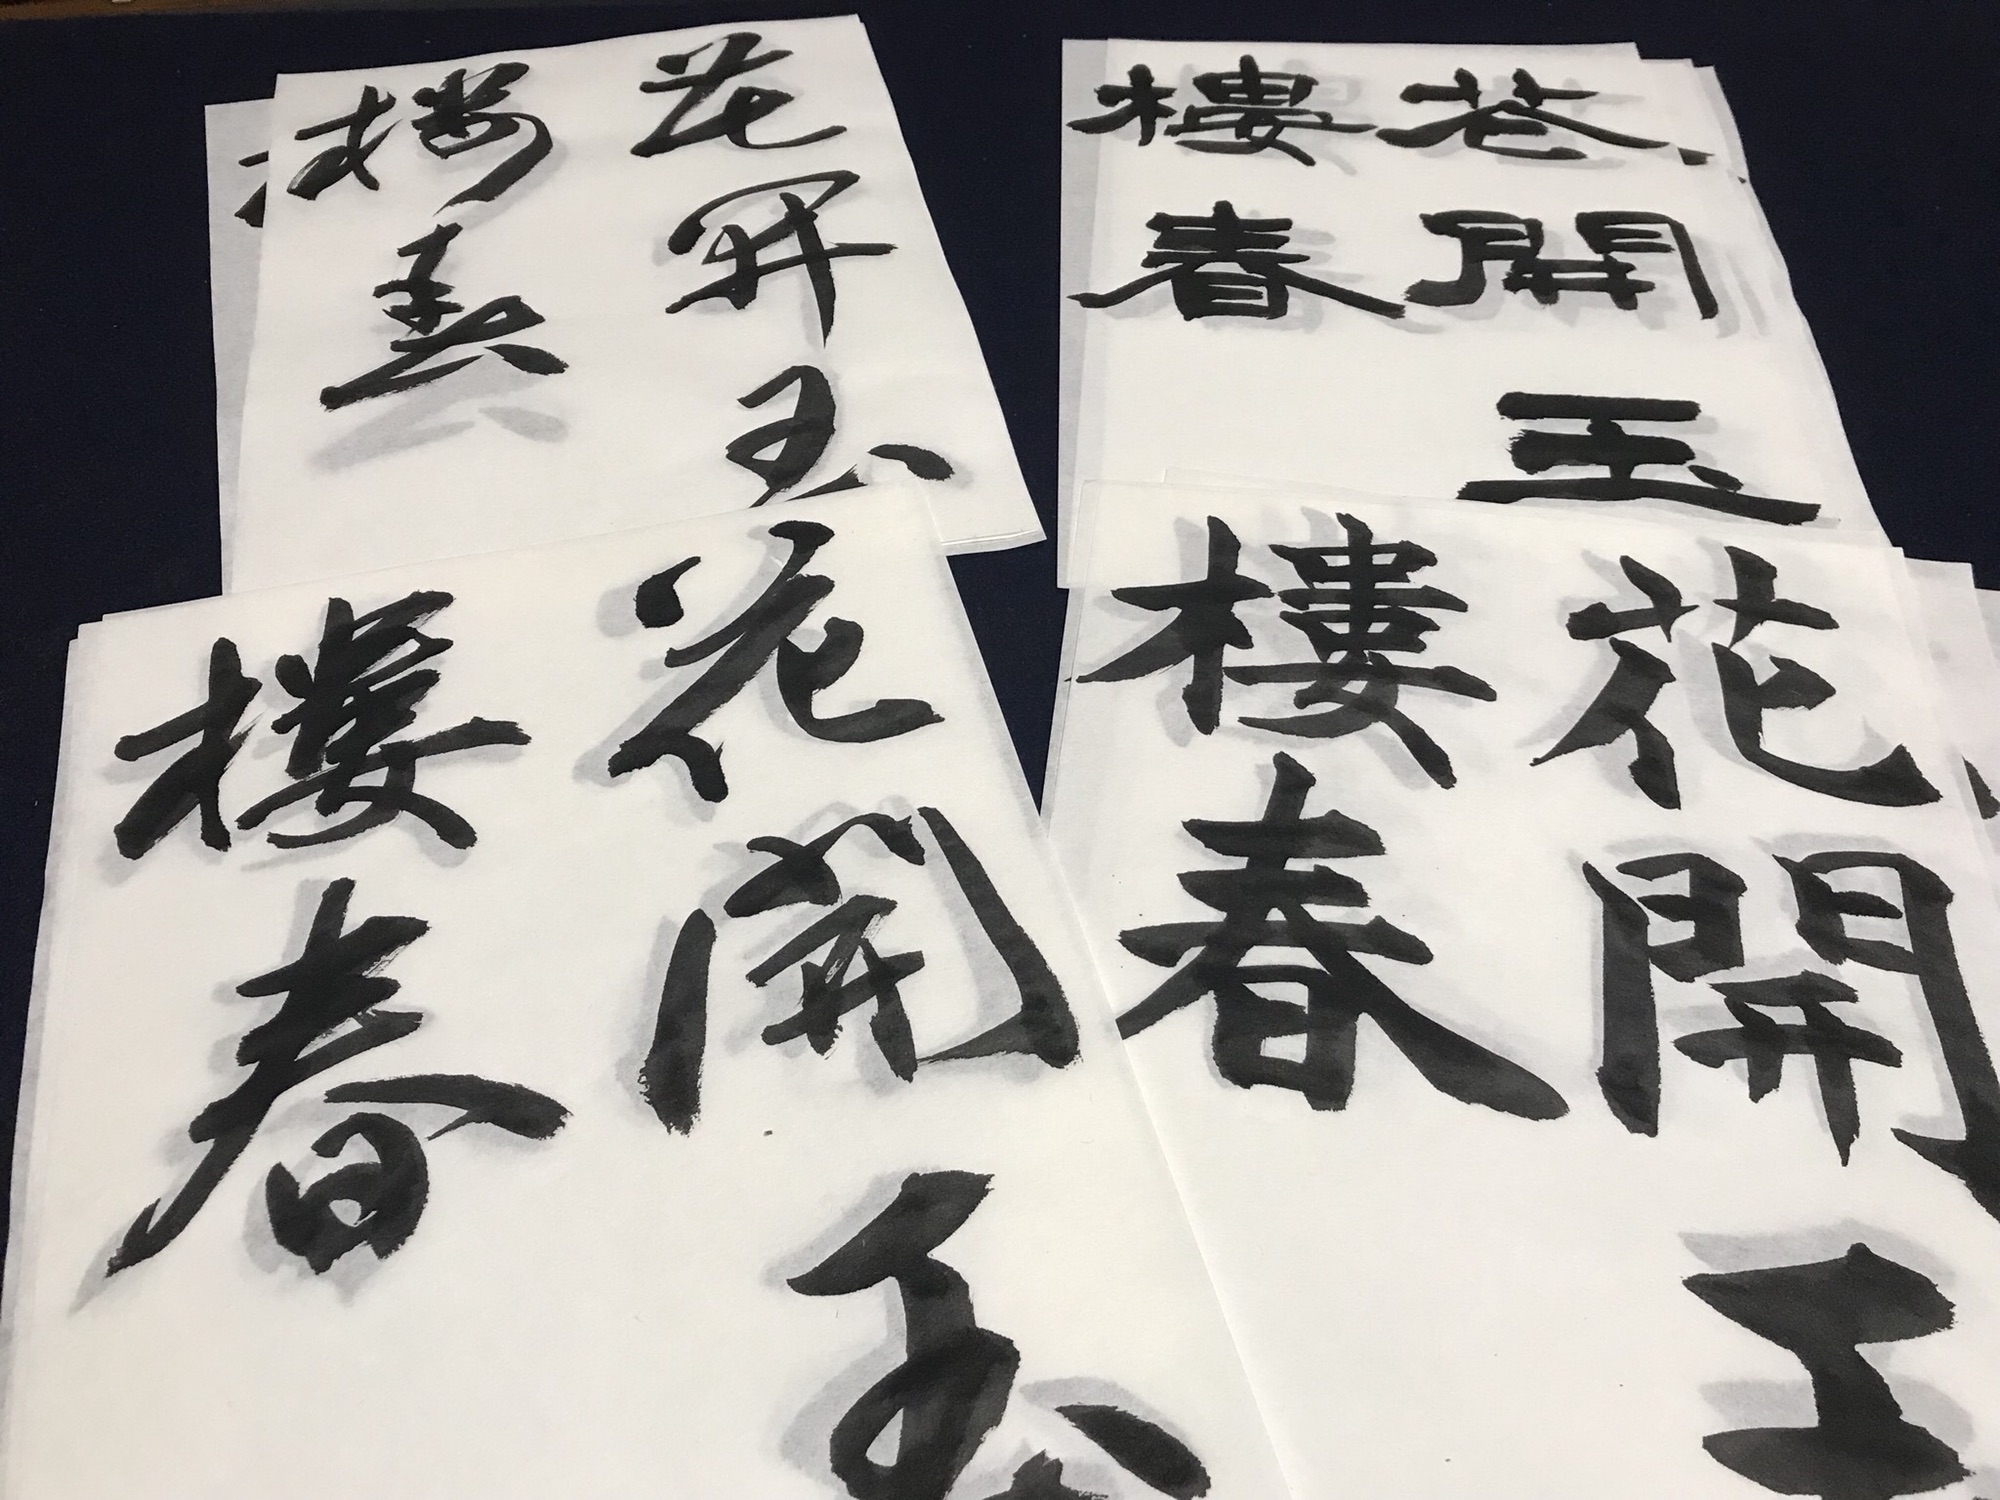 花開玉
樓春
花開玉
樓春
花開玉
樓春
花開玉
樓春